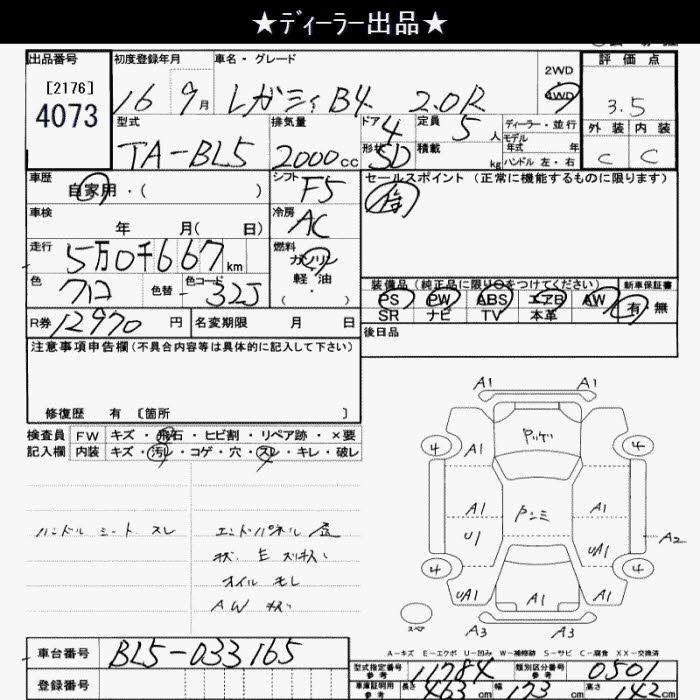 ★ディーラー出品★
出品番号
[2176]
4073
初度登録年月
16 9月
車名・グレード
レガシィB4 2.0R
2WD
4WD
評価点
3.5
外装 内装
C C
型式
TA-BL5
排気量
2000cc
ドア 4
形状 SD
定員 5人
積載 kg
ディーラー・並行
モデル年式 年
ハンドル 左・右
車歴
自家用・( )
シフト
F5
セールスポイント (正常に機能するものに限ります)
車検
年 月( 日)
冷房
AC
走行
5万0千667km
燃料
ガソリン
軽油
・
色
クロ
色替
色コード
32J
装備品 (純正品に限り○をつけてください) 新車保証書
PS PW ABS エアB AW 有 無
SR ナビ TV 本革
R券 12970 円
名変期限 月 日
後日品
注意事項申告欄 (不具合内容等は具体的に記入して下さい)
修復歴 有 [箇所 ]
検査員 FW キズ・飛石・ヒビ割・リペア跡・×要
記入欄 内装 キズ・汚レ・コゲ・穴・スレ・キレ・破レ
ハンドル シート スレ
エンドパネル
オイル モレ
AW キズ
A1 A1
4 A1 4
A1 A1
U1 UA1
A2
4 4
UA1 A1 A1
スペア
A3 A3
A-キズ E-エクボ U-凹み W-補修跡 S-サビ C-腐食 XX-交換済
車台番号
BL5-033165
登録番号
型式指定番号 参考 11784
類別区分番号 参考 0501
車庫証明用 参考 長さ 463cm 幅 173cm 高さ 142cm